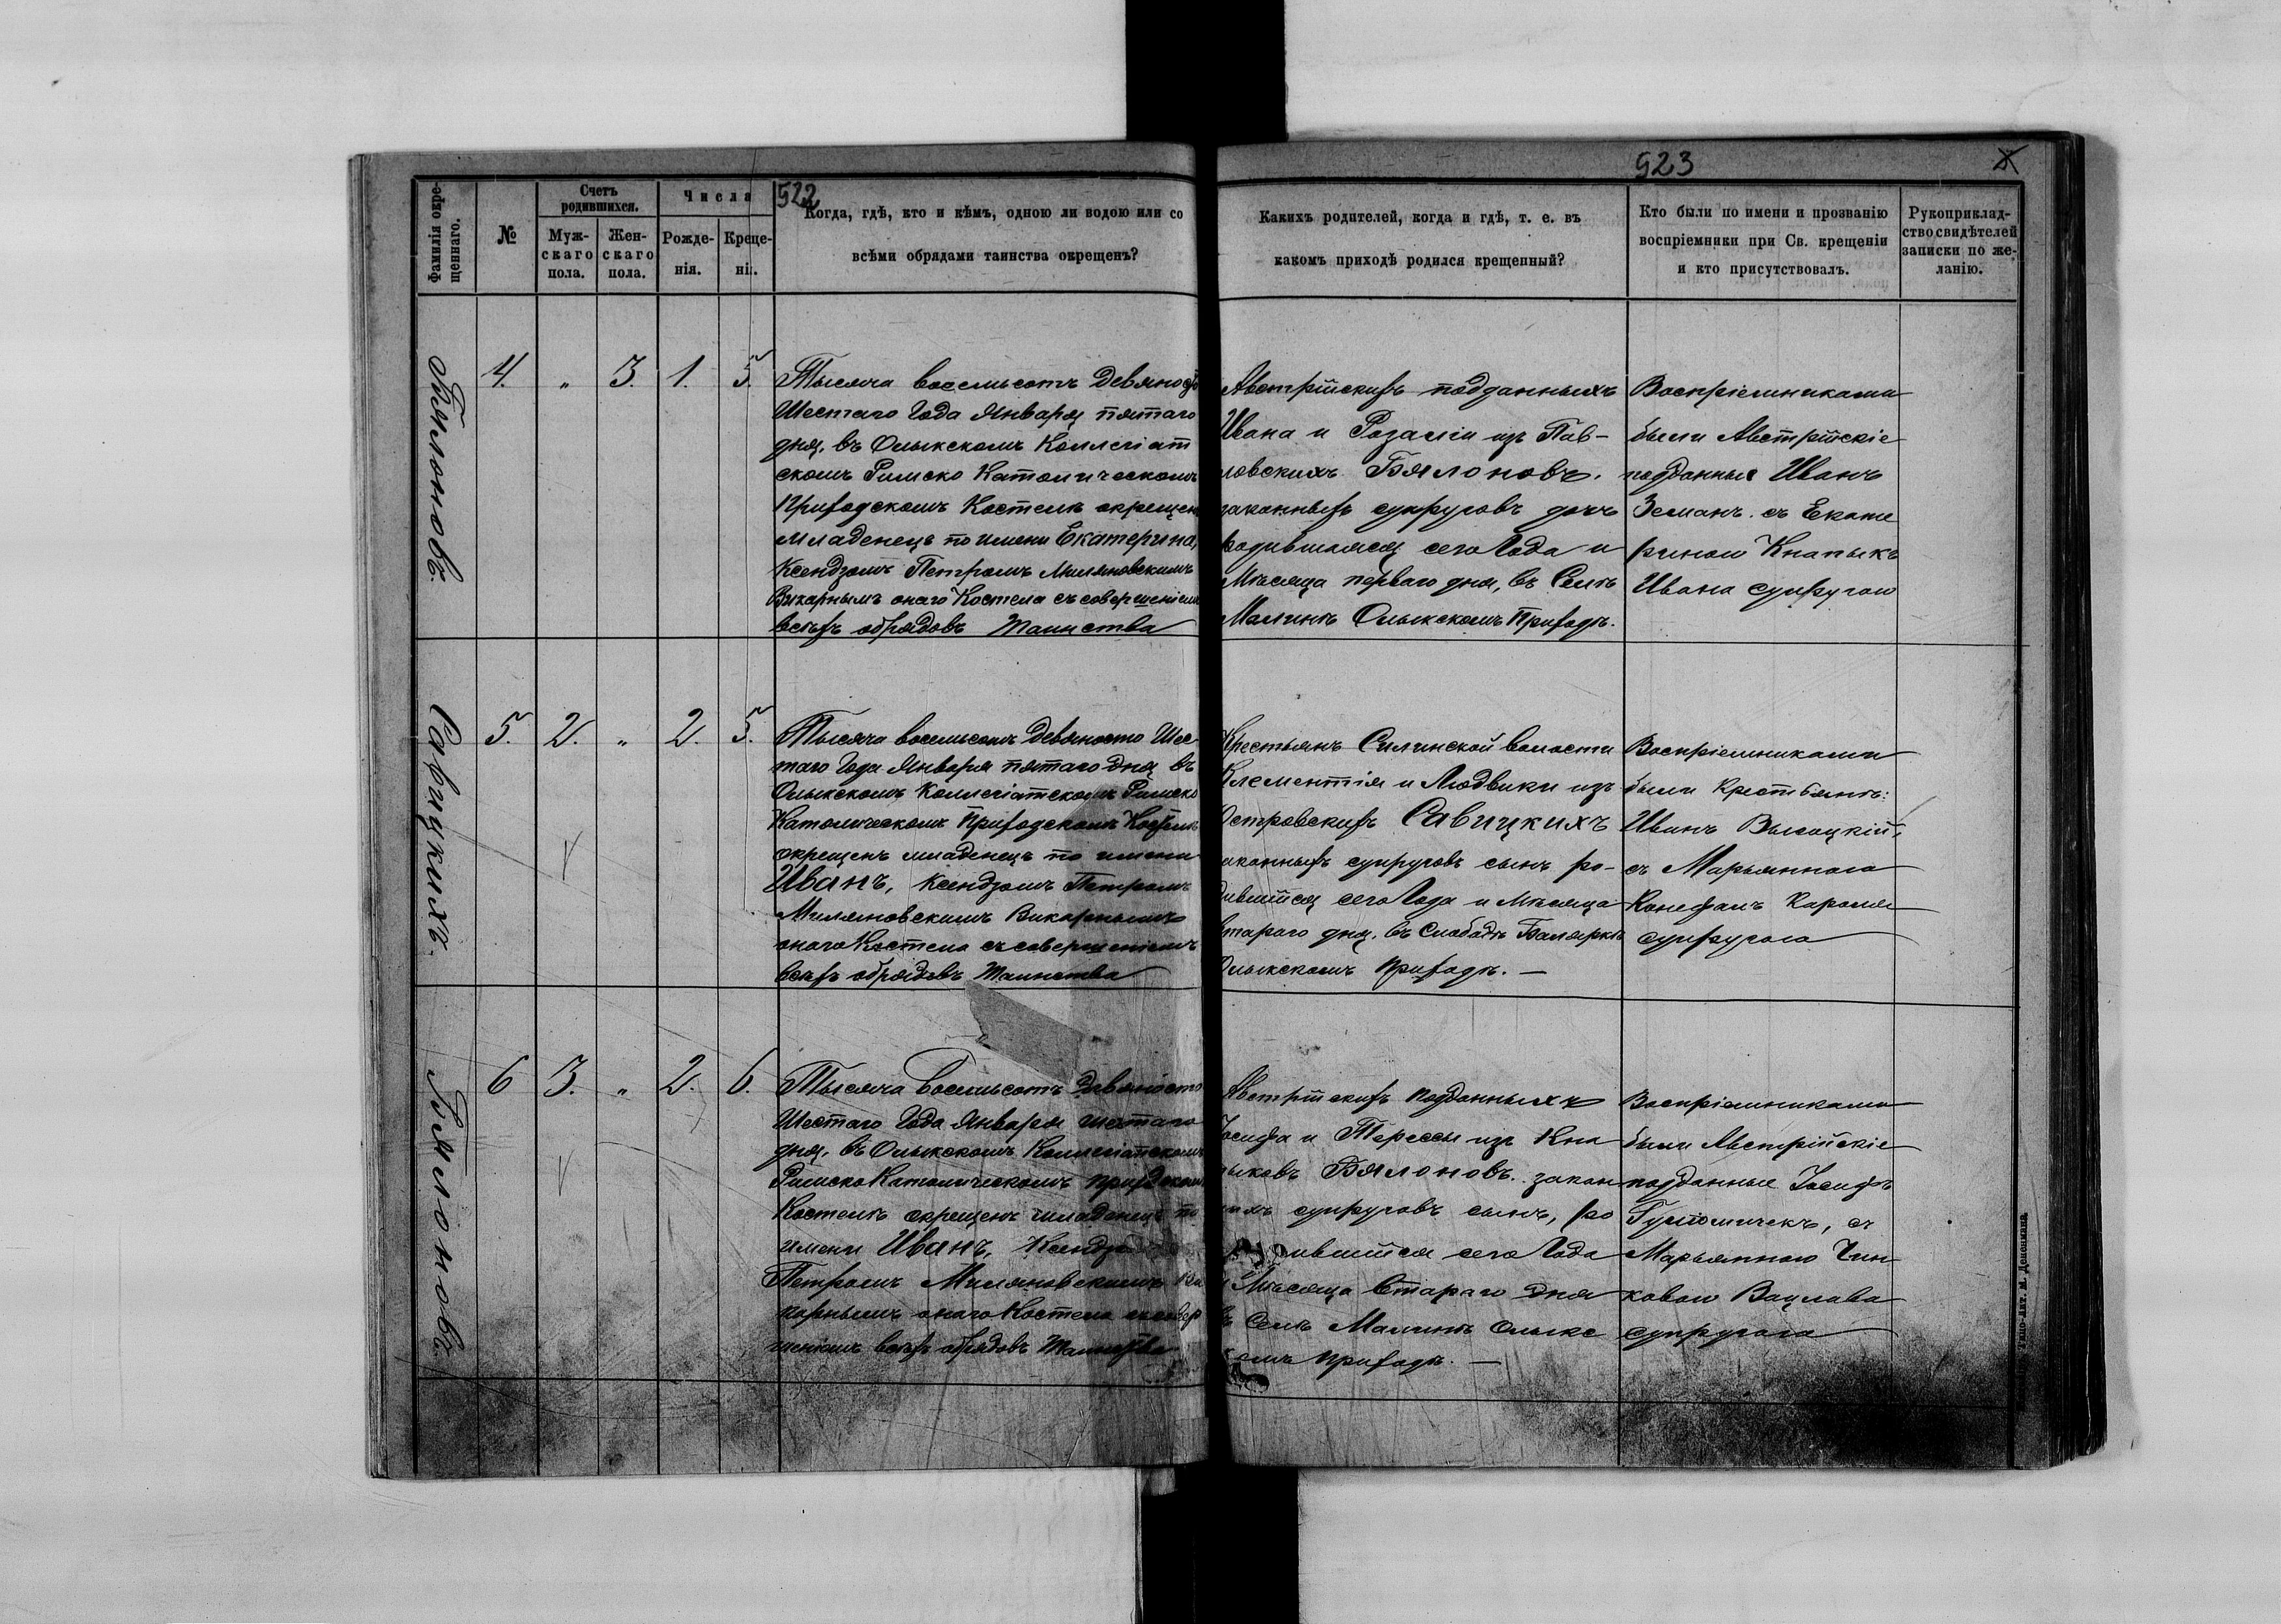 522
523
Фамилія окре-
щеннаго.
№
Счетъ
родившихся.
Муж-
скаго
пола.
Жен-
скаго
пола.
Числа
Рожде-
нія.
Креще-
нія.
Когда, гдѣ, кто и кѣмъ, одною ли водою или со
всѣми обрядами таинства окрещенъ?
Какихъ родителей, когда и гдѣ, т. е. въ
какомъ приходѣ родился крещенный?
Кто были по имени и прозванію
воспріемники при Св. крещеніи
и кто присутствовалъ.
Рукоприклад-
ство свидѣтелей
записки по же-
ланію.
Бялоновъ.
4. „ 3. 1. 5.
Тысяча восемьсотъ девяносто
Шестаго Года Января пятаго
дня, въ Олыкскомъ Коллегіат
скомъ Римско Католическомъ
Приходскомъ Костелѣ окрещенъ
младенецъ по имени Екатерина,
Ксендзомъ Петромъ Миляновскимъ
Викарнымъ онаго Костела съ совершеніемъ
всѣхъ обрядовъ Таинства
Австрійскихъ подданныхъ
Ивана и Розаліи изъ Пав-
ловскихъ Бялоновъ.
законныхъ супруговъ дочь
родившаяся сего Года и
Мѣсяца перваго дня, въ Селѣ
Малинѣ Олыкскомъ Приходѣ.
Воспріемниками
были Австрійскіе
подданные Иванъ
Земанъ съ Екате
риною Кнапыкъ
Ивана супругою
Савицкихъ.
5. 2. „ 2. 5.
Тысяча восемьсотъ девяносто Шес
таго Года Января пятаго дня въ
Олыкскомъ Коллегіатскомъ Римско
Католическомъ Приходскомъ Костелѣ
окрещенъ младенецъ по имени
Иванъ, Ксендзомъ Петромъ
Миляновскимъ Викарнымъ
онаго Костела съ совершеніемъ
всѣхъ обрядовъ Таинства
Крестьянъ Силинской волости
Клементія и Людвики изъ
Островскихъ Савицкихъ
законныхъ супруговъ сынъ ро-
дившійся сего Года и Мѣсяца
втараго дня, въ Слободѣ Балярка
Олыкскомъ Приходѣ. —
Воспріемниками
были Крестьянѣ:
Иванъ Высоцкій,
съ Марьянною
Конефалъ Кароля
супругою
Бялоновъ.
6 3. „ 2. 6.
Тысяча восемьсотъ девяносто
Шестаго Года Января шестаго
дня, въ Олыкскомъ Коллегіатскомъ
Римско Католическомъ приходскомъ
Костелѣ окрещенъ младенецъ по
имени Иванъ, Ксендзо
Петромъ Миляновскимъ Ви
карнымъ онаго Костела съ совер
шеніемъ всѣхъ обрядовъ Таинства
Австрійскихъ подданныхъ
Іосифа и Терессы изъ Кна
пыковъ Бялоновъ. закон
ныхъ супруговъ сынъ, ро
дившійся сего Года
и Мѣсяца втараго дня
въ Селѣ Малинѣ Олыкс
комъ приходѣ. —
Воспріемниками
были Австрійскіе
подданные Іосифъ
съ
Марьянною Чин
ковою Вацлава
супругою